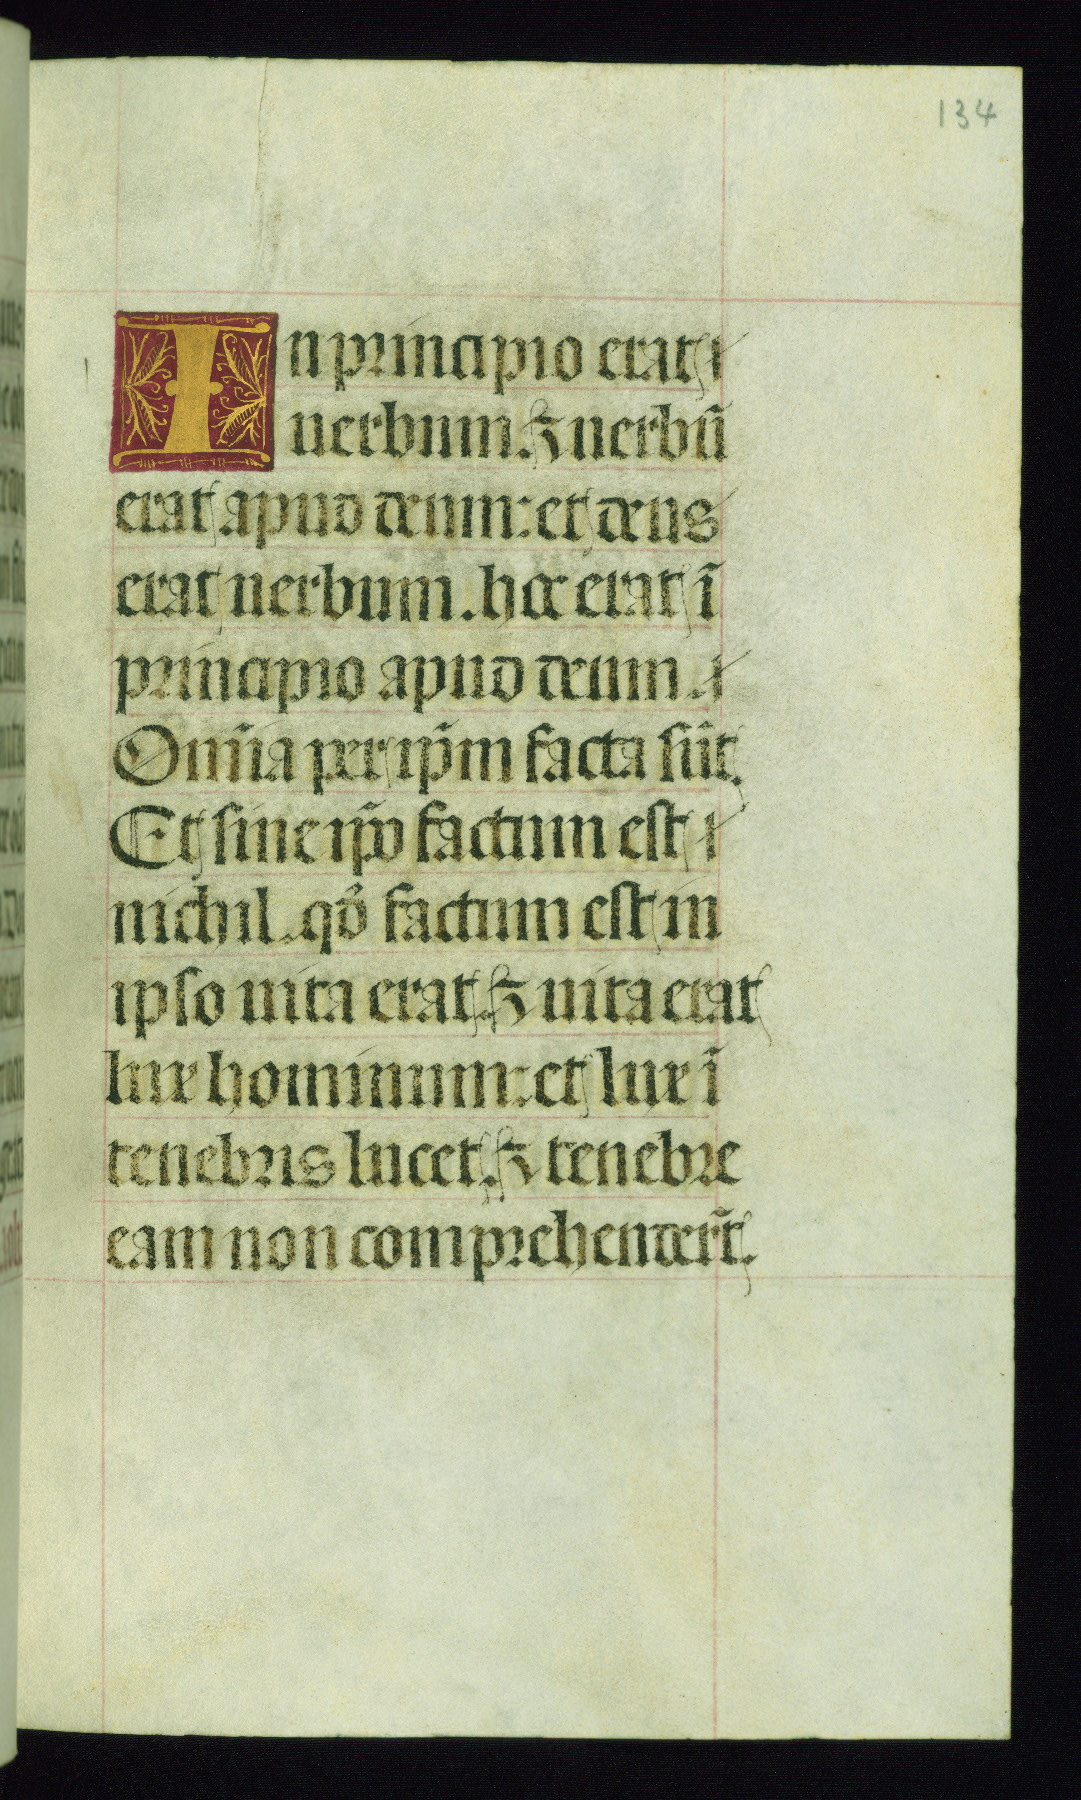 134
In principio erat
uerbum. ⁊ uerbū
erat apud deum: et deus
erat uerbum. hoc erat ī
principio apud deum.
Omīa per ip̄m facta sūt.
Et sine ip̄o factum est
nichil. qd̄ factum est in
ipso uita erat. ⁊ uita erat
lux hominum: et lux ī
tenebris lucet. ⁊ tenebre
eam non comprehender̄t.